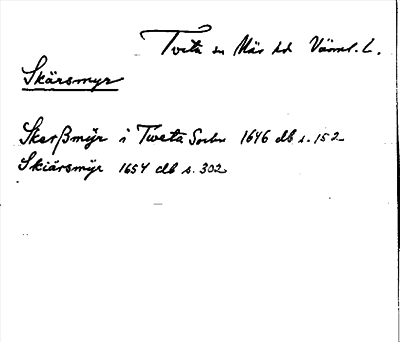 Tveta sn När hd Värml. L.
Skärsmyr
Skerßmÿr i Tweta Sochn 1646 db s. 152
Skiärsmÿr 1654 db s. 302